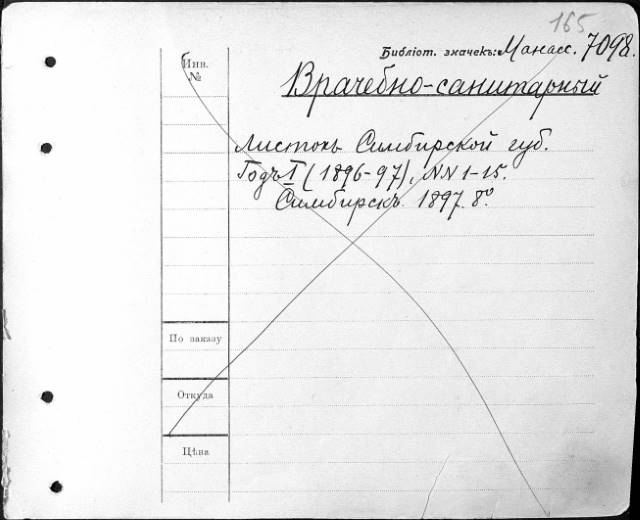 165
Библіот. значекъ: Манасс. 7098.
Инв.
№
Врачебно-санитарный
листокъ Симбирской губ.
Годъ I (1896-97), NN 1-15.
Симбирскъ. 1897. 8º
По заказу
Откуда
Цѣна